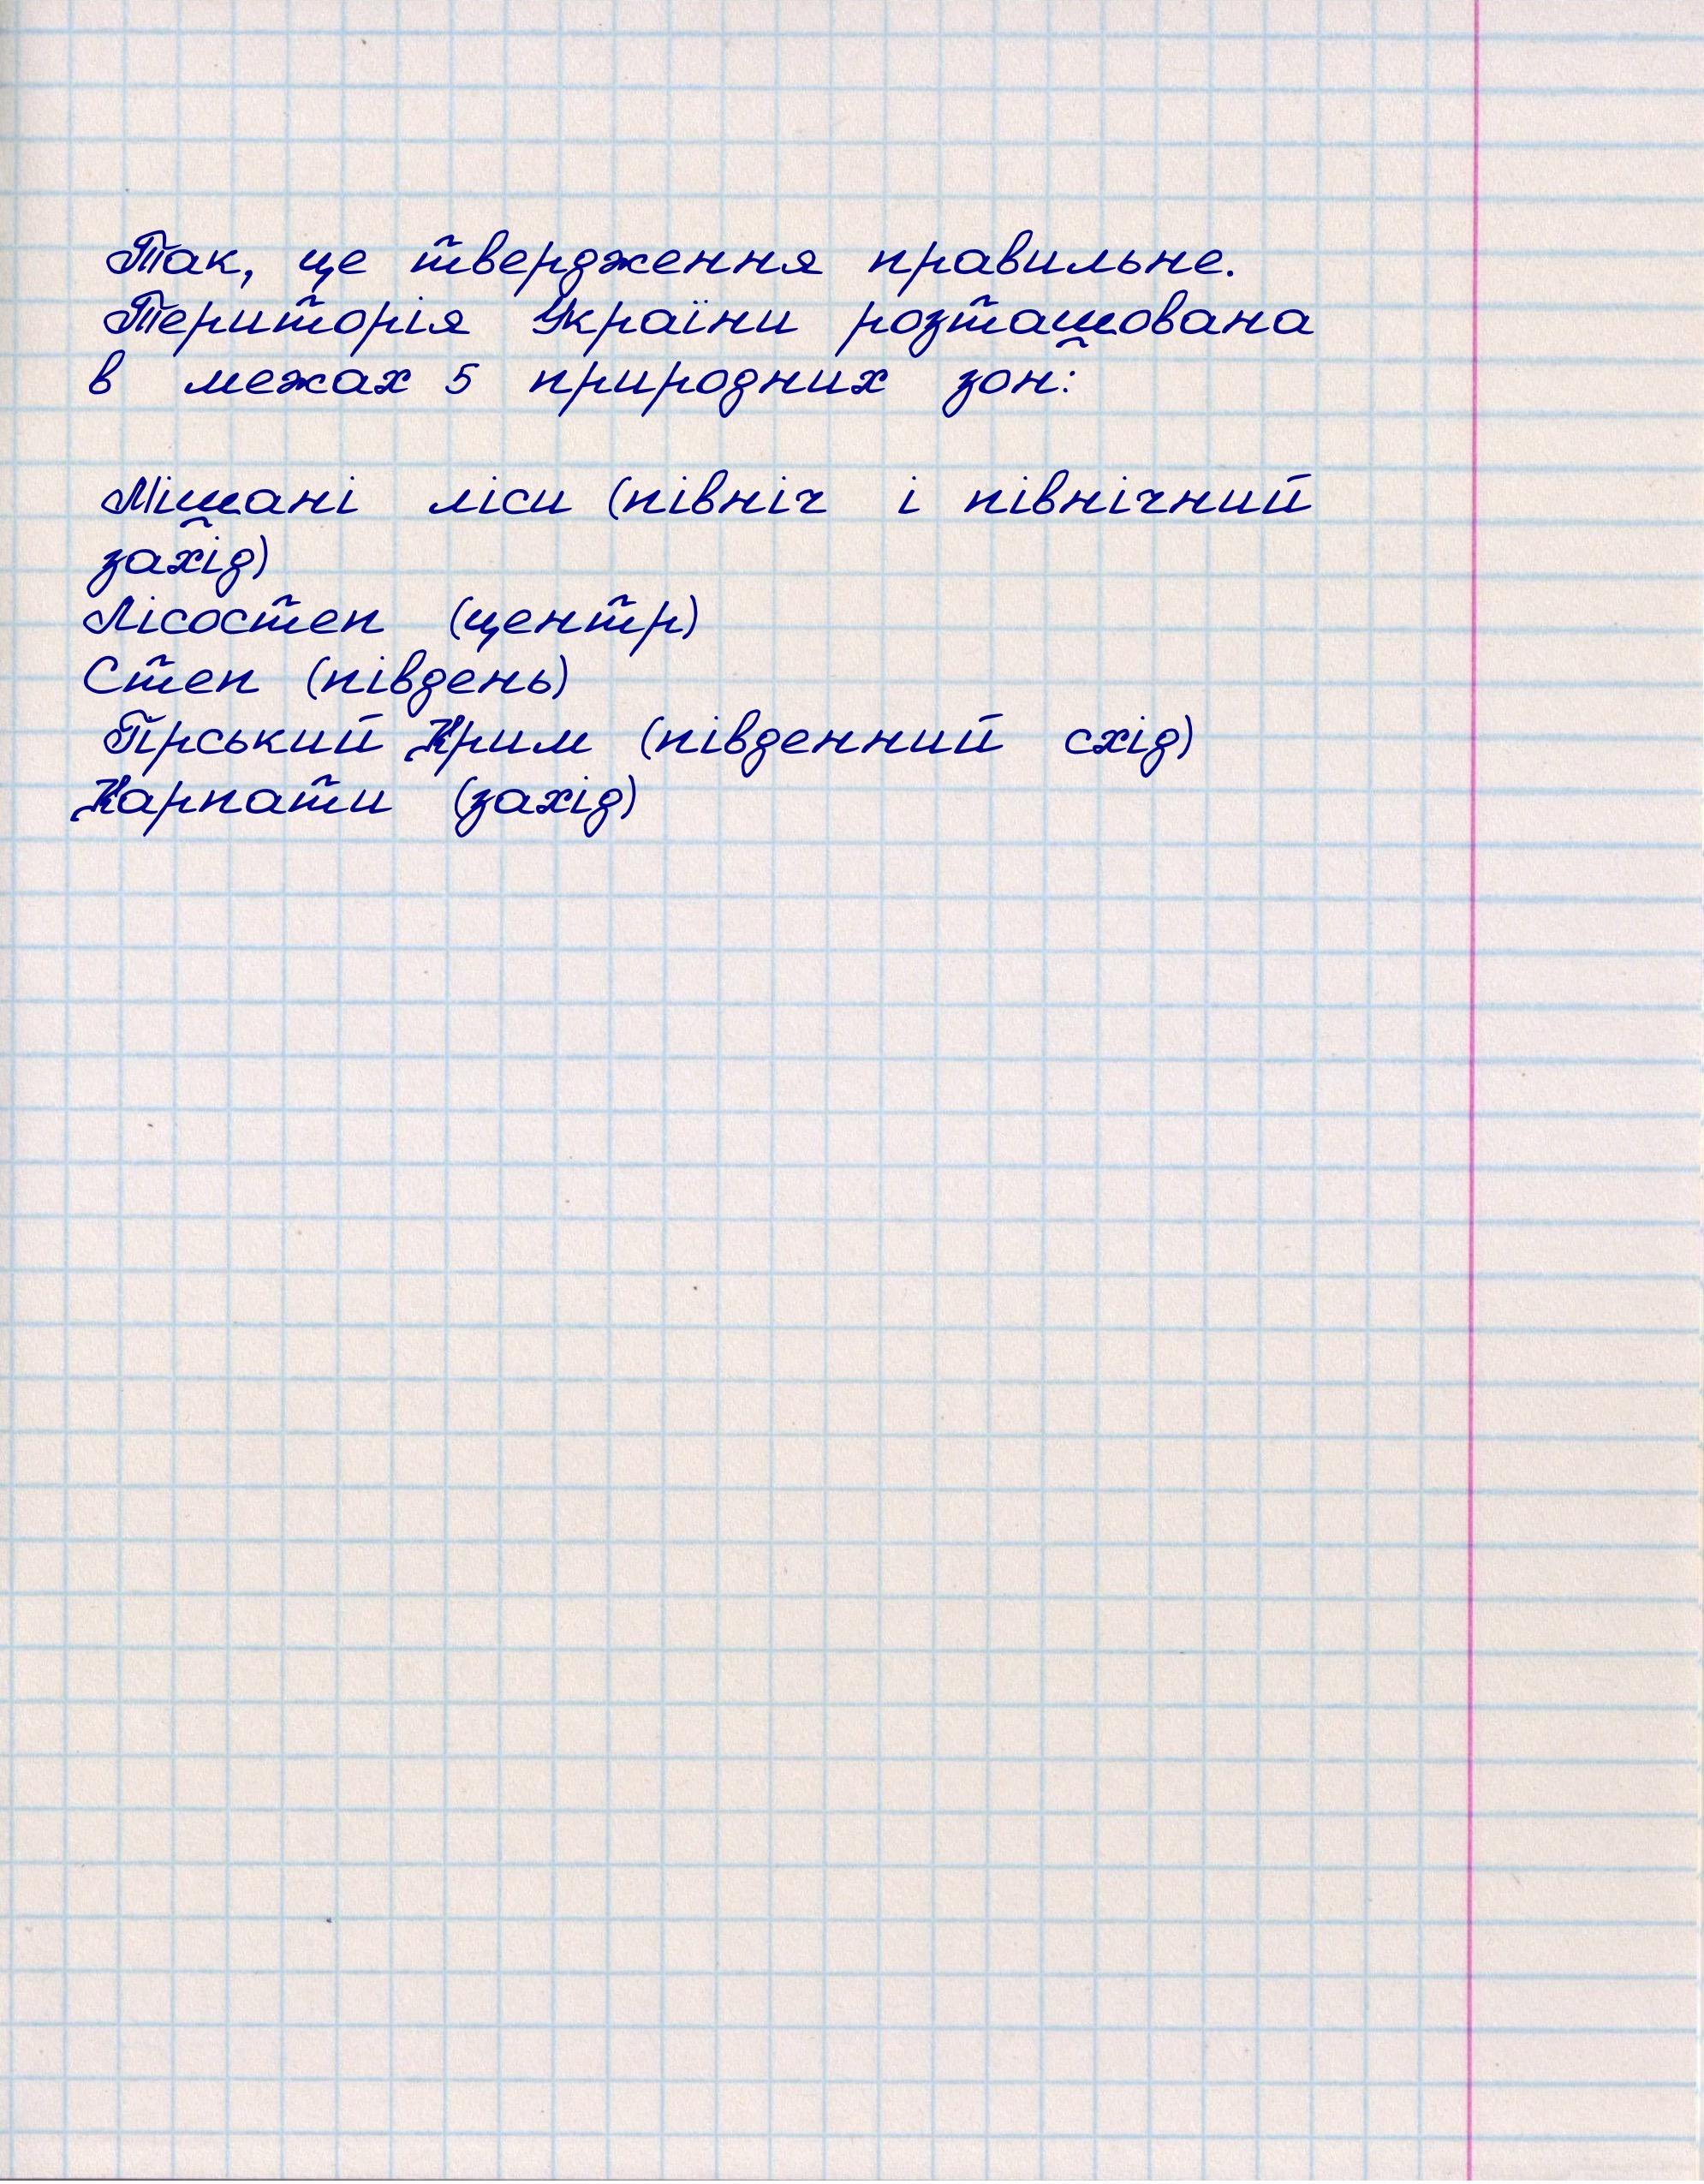 Так, це твердження правильне.
Територія України розташована
в межах 5 природних зон:
Мішані ліси (північ і північний
захід)
Лісостеп (центр)
Степ (південь)
Гірський Крим (південний схід)
Карпати (захід)